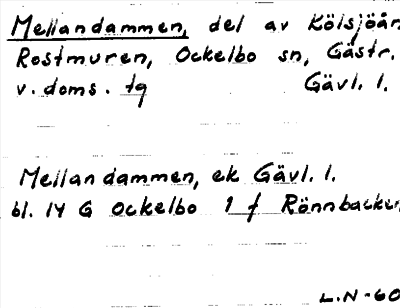 Mellandammen, del av Kölsjöån
Rostmuren, Ockelbo sn, Gästr.
v. doms. tg Gävl. l.
Mellandammen, ek Gävl. l.
bl. 14 G Ockelbo 1 f Rönnbacken
L.N-60